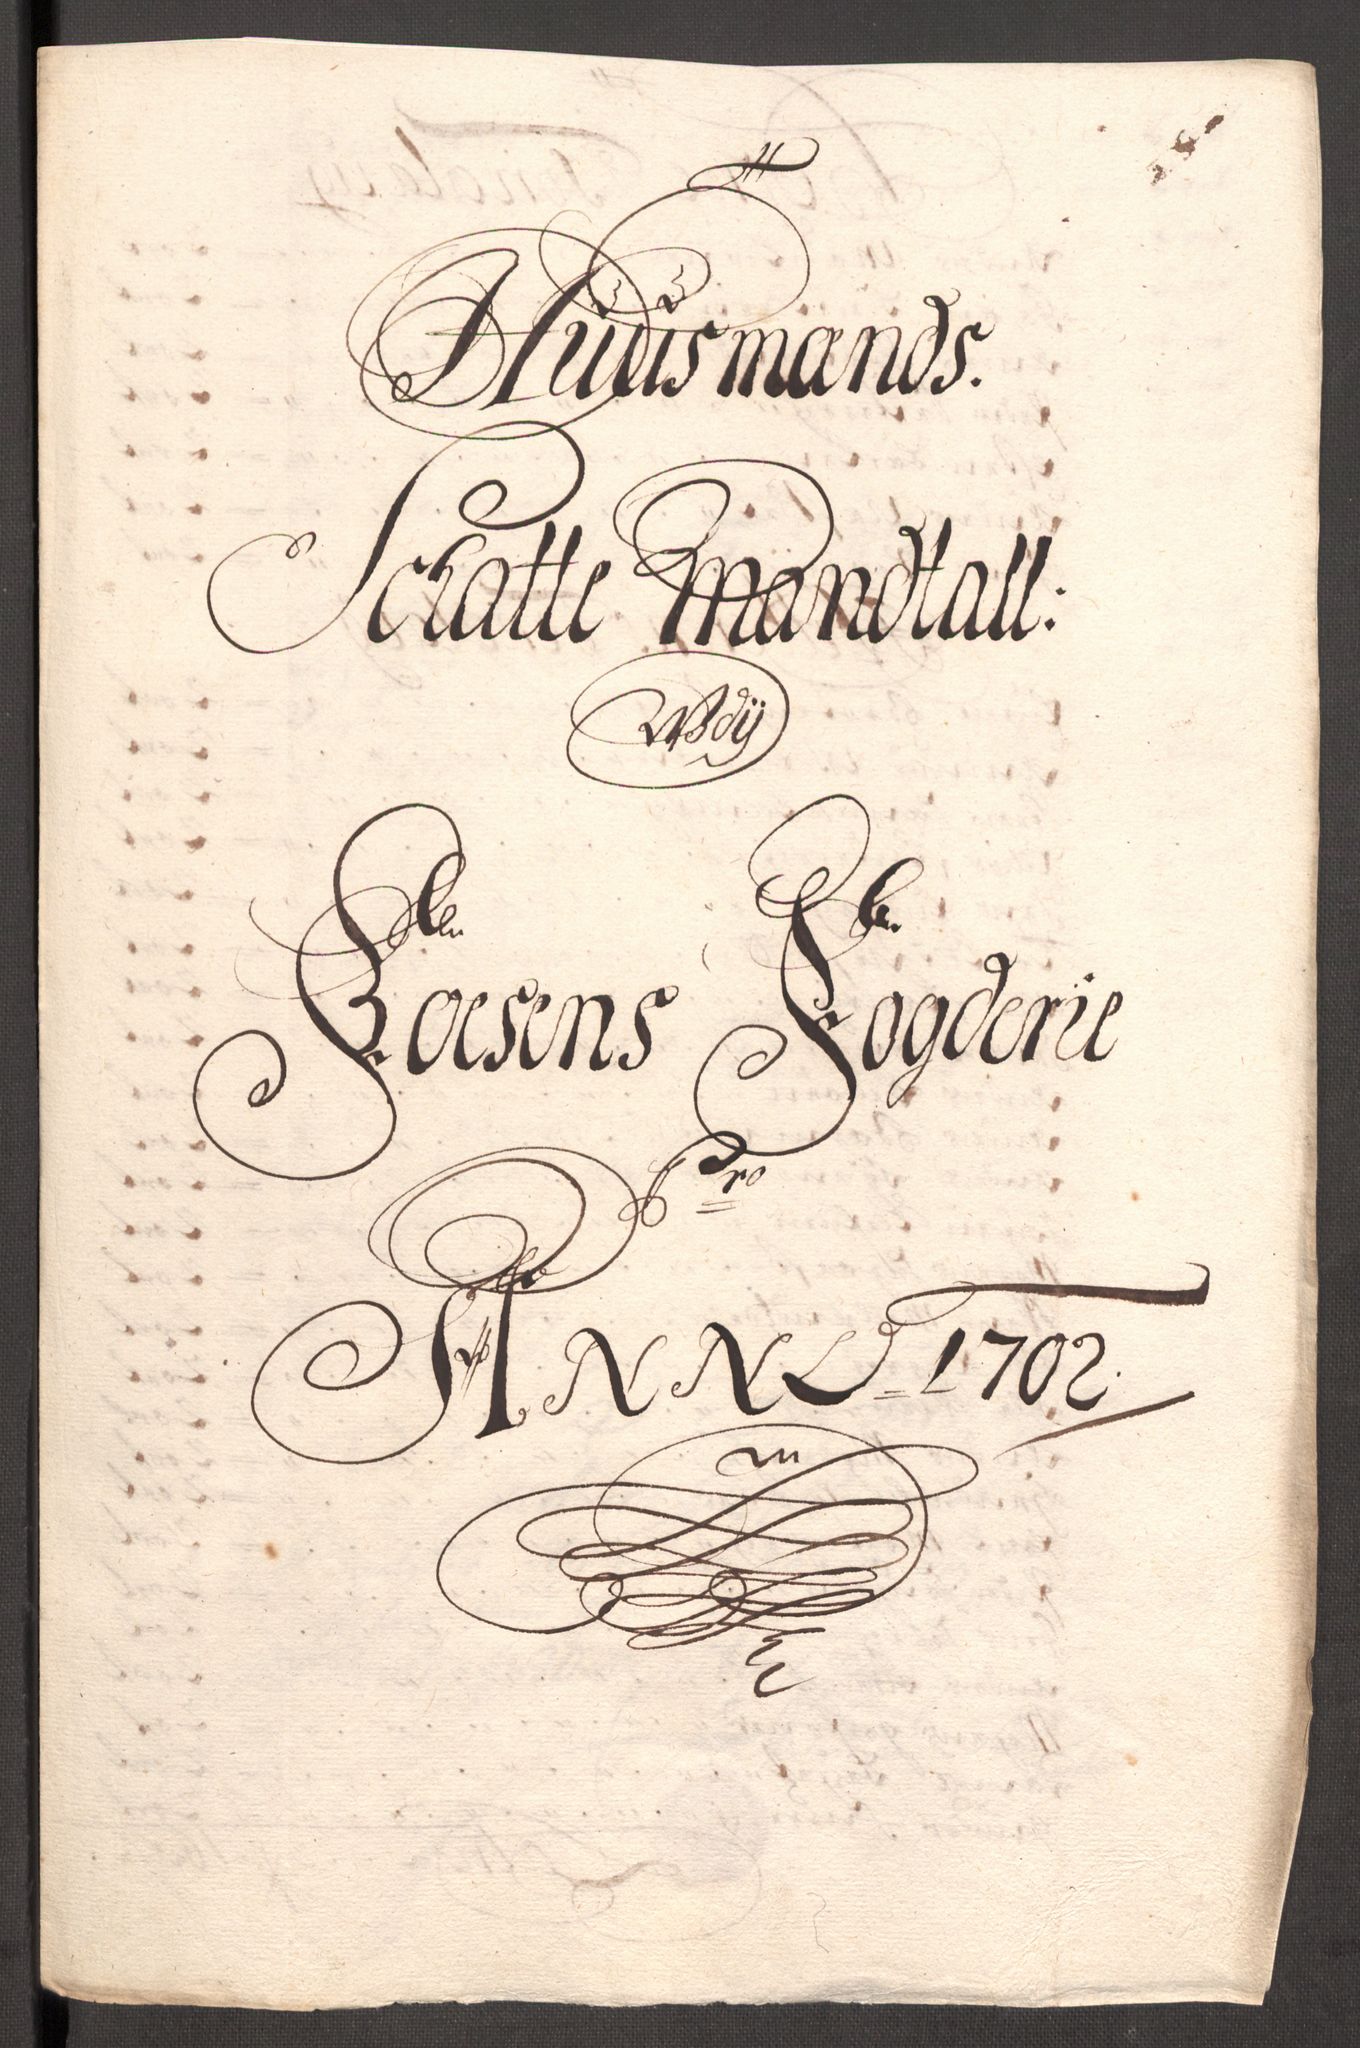 Huusmands.
Schatte Mandtall:
Udj
Foesens Fogderie
Pro
ANNO = 1702.